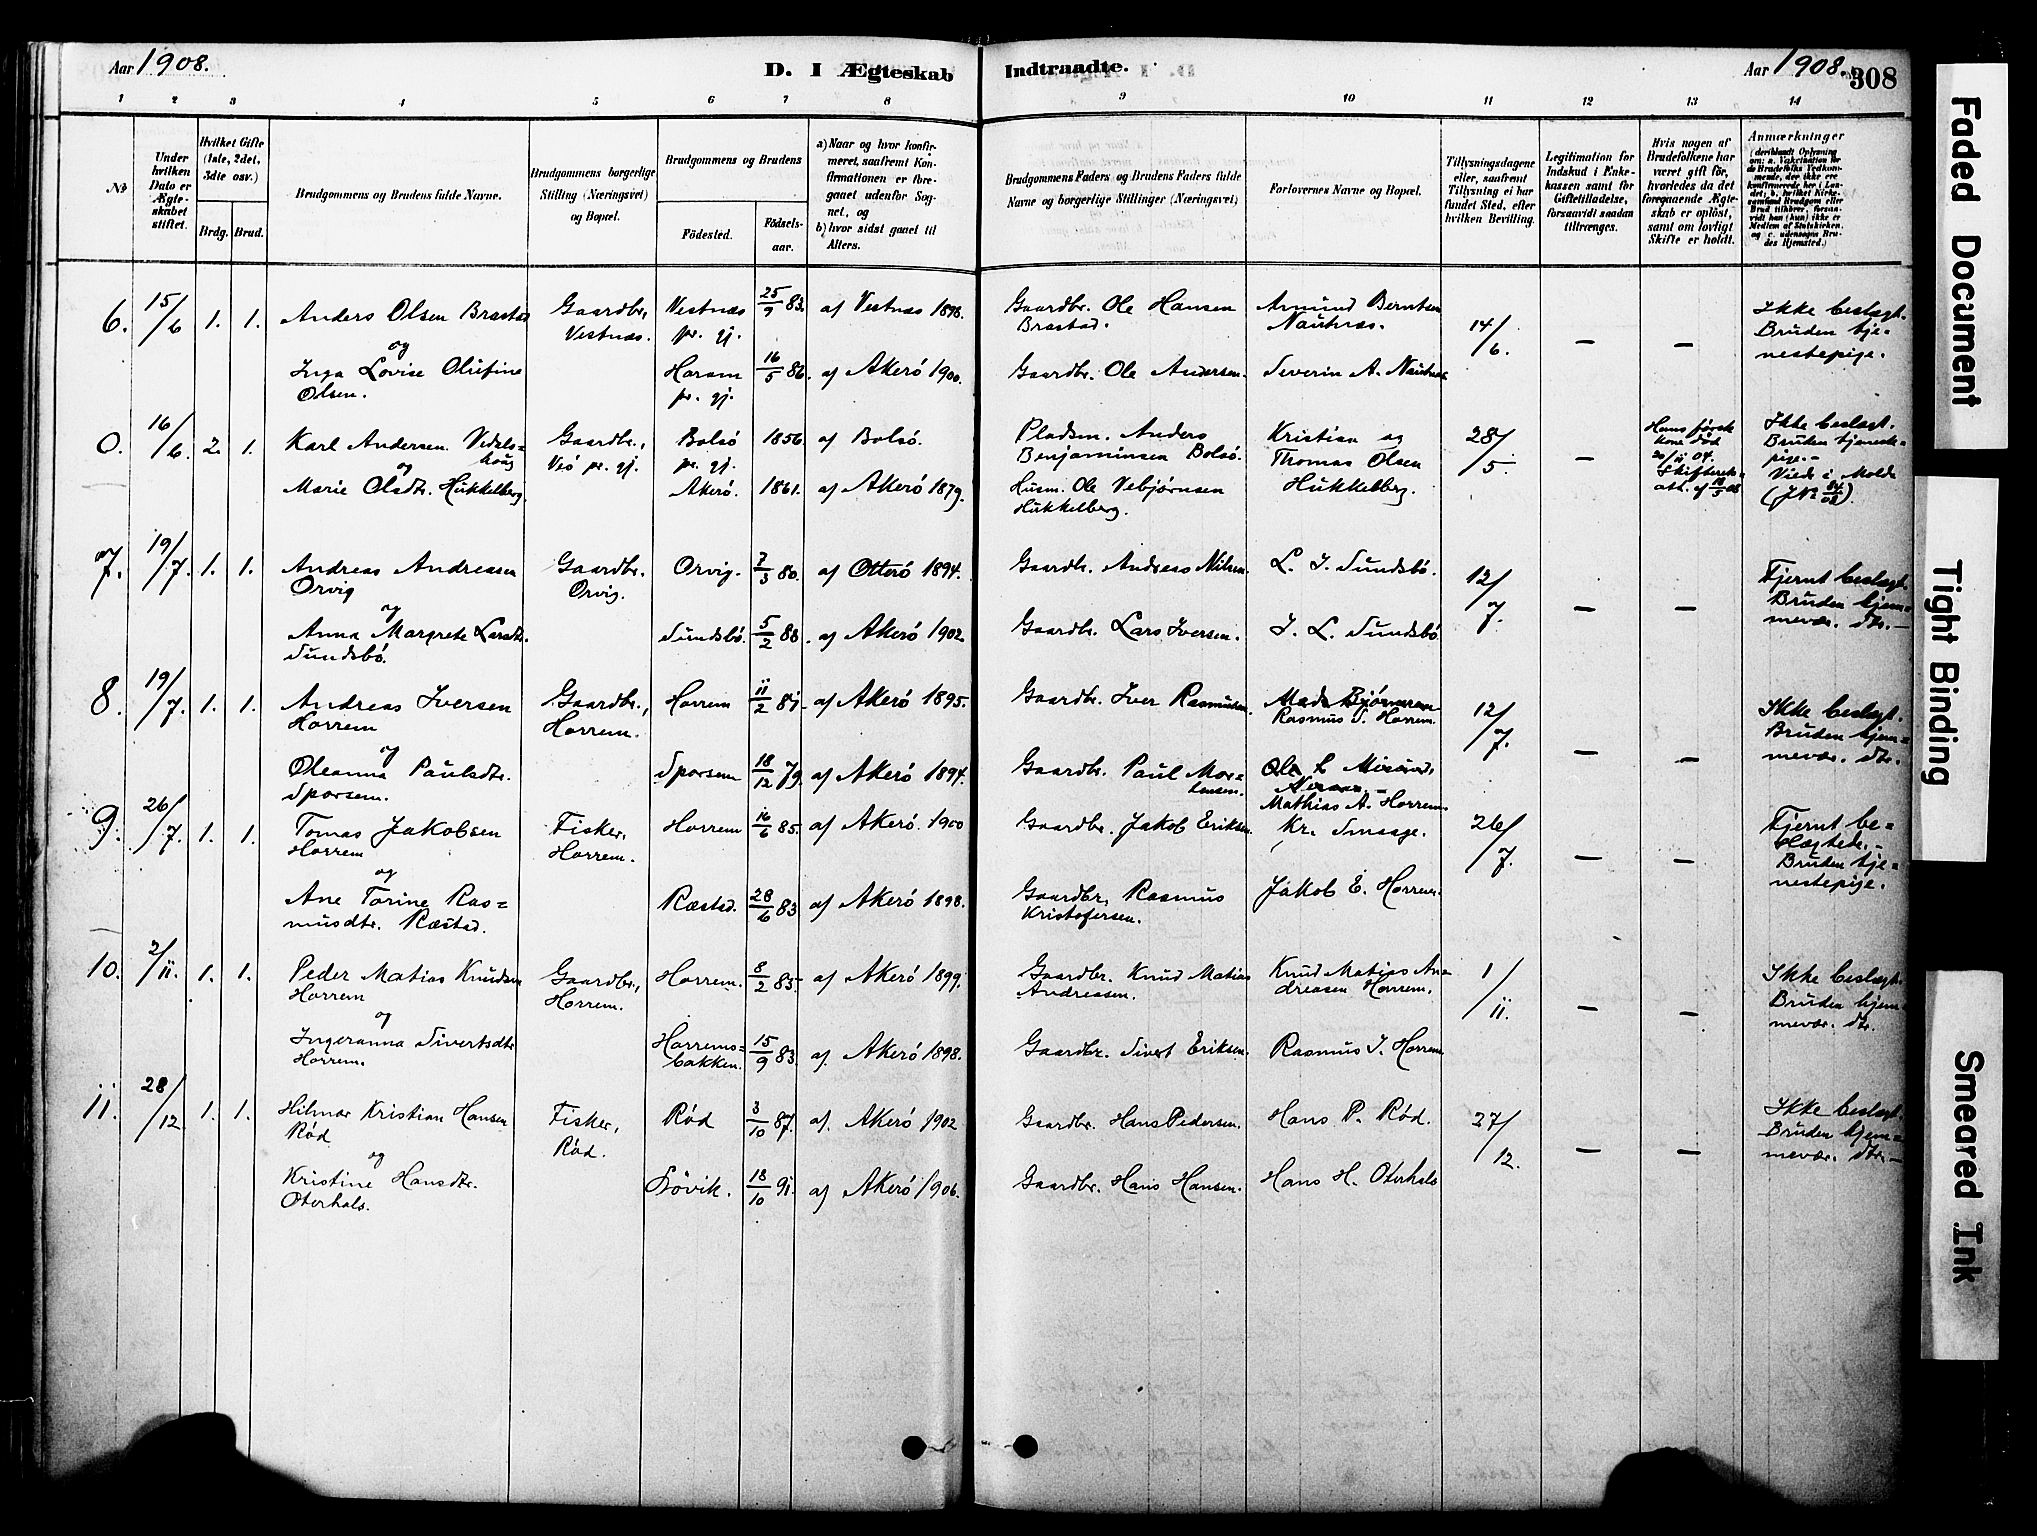 Aar 1908.
D. I Ægteskab
Indtraadte.
Aar 1908.
308
1 2 3 4 5 6 7 8
9 10 11 12 13 14
No
Under hvilken Dato er Ægteskabet stiftet.
Hvilket Gifte (1ste, 2det, 3die osv.)
Brdg. Brud.
Brudgommens og Brudens fulde Navne.
Brudgommens borgerlige Stilling (Næringsvei) og Bopæl.
Brudgommens og Brudens
Fødested.
Fødsels-aar.
a) Naar og hvor konfirmeret, saafremt Konfirmationen er foregaaet udenfor Sognet, og
b) hvor sidst gaaet til Alters.
Brudgommens Faders og Brudens Faders fulde Navne og borgerlige Stillinger (Næringsvei)
Forlovernes Navne og Bopæl.
Tillysningsdagene eller, saafremt Tillysning ei har fundet Sted, efter hvilken Bevilling.
Legitimation for Indskud i Enkekassen samt for Giftetilladelse, forsaavidt saadan tiltrænges.
Hvis nogen af Brudefolkene har været gift før, hvorledes da det foregaaende Ægteskab er opløst, samt om lovligt Skifte er holdt.
Anmærkninger
6. 15/6 1. 1. Anders Olsen Brastad Gaardbr., Vestnæs 25/9 83. af Vestnæs 1898. Gaardbr. Ole Hansen Amund Berntsen 14/6. — — Ikke beslægt.
og Vestnæs. pr. gj. Brastad. Nautnæs. Bruden tje-
Inga Lovise Olufine Haram 16/5 86. af Akerö 1900. Gaardbr. Ole Andersen. Severin A. Nautnæs nestepige.
Olsen. pr. gj.
0. 16/6. 2. 1. Karl Andersen Gaardbr., Bolsö 1856 af Bolsö. Pladsm. Anders Kristian og 28/5 — Hans første Ikke beslægt.
og Veö pr. gj. pr. gj. Benjaminsen Bolsö. Thomas Olsen kone død Bruden
Marie Olsdtr. Hukkelberg Akerö. 1861. af Akerö 1879. Husm. Ole Vebjørnsen Hukkelberg. 04. pige.-
Hukkelberg. Viede i Molde
7. 19/7. 1. 1. Andreas Andreassen Gaardbr. Orvig. 80. af Otterö 1894. Gaardbr. Andreas Nilsen. L. I. Sundsbö. 12/7. — — Fjernt beslægt.
Orvig Orvig. Bruden hjem=
og mevær. dtr.—
Anna Margrete Larsdtr. Sundsbö. 5/2 88. af Akerö 1902. Gaardbr. Lars Iversen. I. L. Sundsbö
Sundsbö.
8. 19/7. 1. 1. Andreas Iversen Gaardbr., Horrem af Akerö 1895. Gaardbr. Iver Rasmussen. 12/7. — — Ikke beslægt.
Horrem Horrem. Rasmus I. Horrem. Bruden hjem=
og mevær. dtr.
Oleanna Paulsdtr. Sporsem 18/12 79. af Akerö 1894. Gaardbr. Paul Mor=
Sporsem. tensen. Mathias A. Horrem
9. 26/7. 1. 1. Tomas Jakobsen Fisker, Horrem 16/6 85. af Akerö. 1900 Gaardbr. Jakob Eriksen. Kr. Smaage. 26/7. — — Fjernt be=
Horrem Horrem. slægtede.-
og Bruden tje=
Ane Torine Ras= Ræstad. 28/6 83 af Akerö 1898. Gaardbr. Rasmus Jakob E. Horrem. nestepige.
musdtr. Ræstad. Kristofersen.
10. 2/11. 1. 1. Peder Matias Knudsen Gaardbr., Horrem. 8/2 85. af Akerö 1899. Gaardbr. Knud Matias Knud Matias An 1/11. — — Ikke beslægt.
Horrem Horrem. Andreasen. dreasen Horrem. Bruden hjem
og mevær. dtr.
Ingeranna Sivertsdtr. Horrems= 15/9 83. af. Akerö 1898. Gaardbr. Sivert Eriksen. Rasmus I. Horrem
Horrem. bakken.
11. 28/12 1. 1. Hilmar Kristian Hansen Fisker, Rød 3/10 87. af. Akerö 1902 Gaardbr. Hans Pedersen. Hans P. Rød. 27/12. — — Ikke beslægt.
Rød Rød. Bruden hjem=
og mevær. dtr.—
Kristine Hansdtr. Sövik. 18/10 91. af Akerö 1906. Gaardbr. Hans Hansen. Hans H. Oterhals
Oterhals.
Faded Document
Tight Binding
Smeared Ink